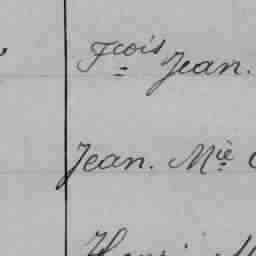 Fcois Jean.
Jean. Mie
Henri